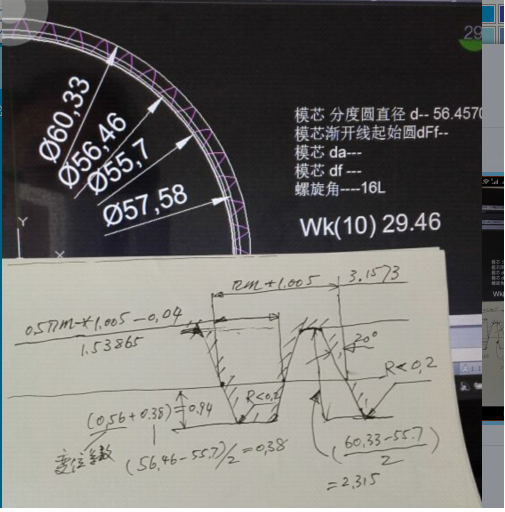 29
Ø60,33
Ø56,46
Ø55,7
Ø57,58
模芯 分度圆直径 d-- 56.4570
模芯渐开线起始圆dFf--
模芯 da---
模芯 df ---
螺旋角----16L
Wk(10) 29.46
Y
X
πm*1.005
3.1573
0.5πm*1.005-0.04
1.53865
20°
R<0.2
R<0.2
(0.56+0.38)=0.94
变位系数
(56.46-55.7)/2=0.38
(60.33-55.7)
2
=2.315